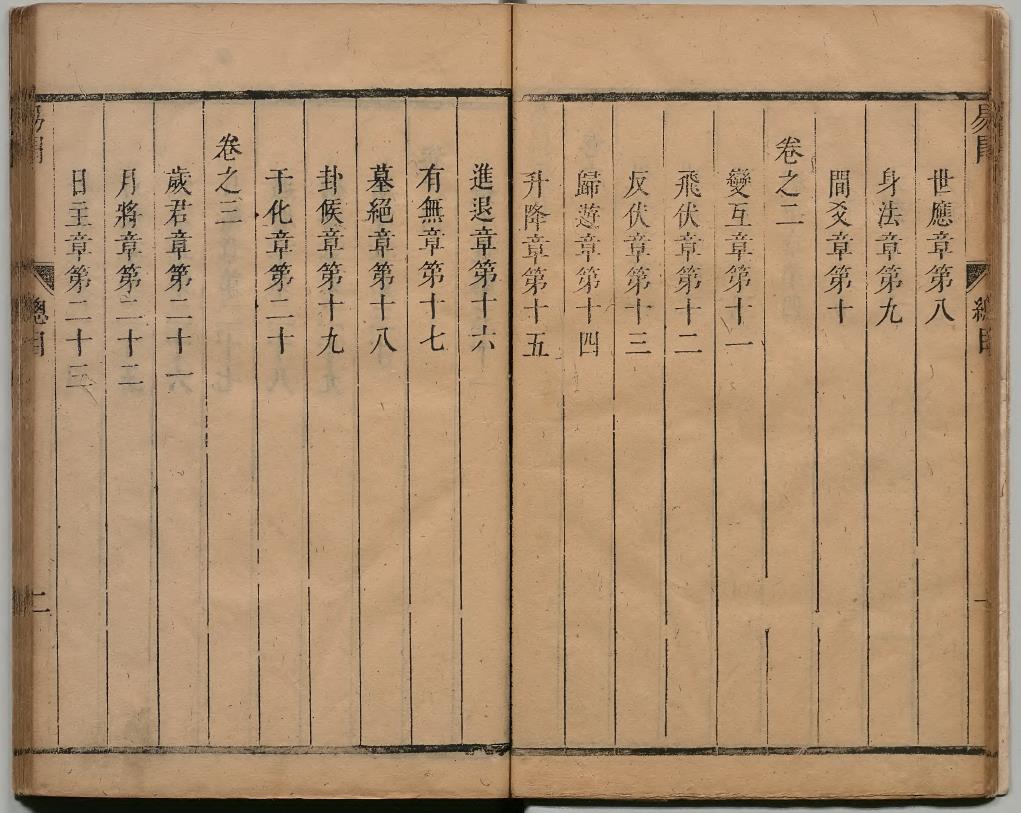 世應章第八
身法章第九
間爻章第十
卷之二
變互章第十一
飛伏章第十二
反伏章第十三
歸遊章第十四
升降章第十五
進退章第十六
有無章第十七
墓絕章第十八
卦候章第十九
干化章第二十
卷之三
歲君章第二十一
月將章第二十二
日主章第二十三
總目
二